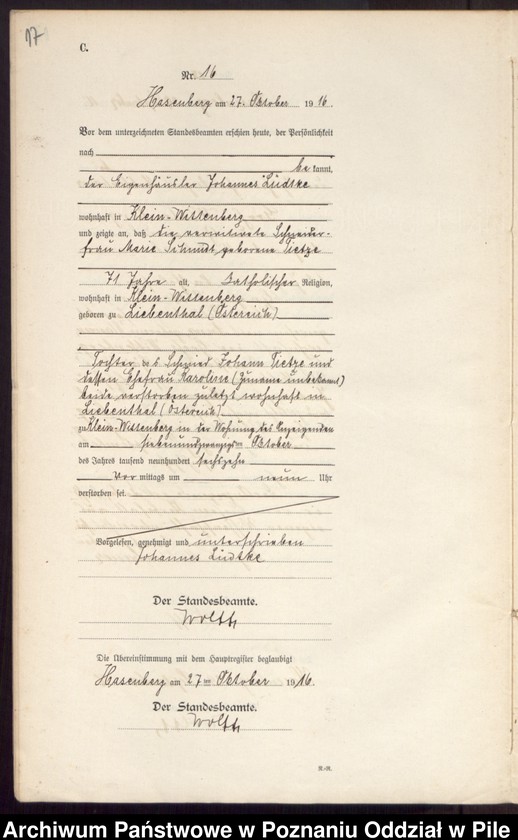 17
C.
Nr. 16
Hasenberg am 27. Oktober 1916.
Vor dem unterzeichneten Standesbeamten erschien heute, der Persönlichkeit
nach
bekannt,
der Eigenhäusler Johannes Lüdtke
wohnhaft in Klein-Wittenberg
und zeigte an, daß die verwitwete Schneider-
frau Marie Schmidt geborene Tietze
71 Jahre alt, katholischer Religion,
wohnhaft in Klein-Wittenberg
geboren zu Liebenthal (Östereich)
Tochter des Schmied Johann Tietze und
dessen Ehefrau Karoline (Zuname unbekannt)
beide verstorben zuletzt wohnhaft in
Liebenthal (Östereich)
zu Klein-Wittenberg in der Wohnung des Anzeigenden
am siebenundzwanzigsten Oktober
des Jahres tausend neunhundert sechszehn
Vormittags um neun Uhr
verstorben sei.
Vorgelesen, genehmigt und unterschrieben
Johannes Lüdtke
Der Standesbeamte.
Die Übereinstimmung mit dem Hauptregister beglaubigt
Hasenberg am 27ten Oktober 1916.
Der Standesbeamte.
R.-R.
Archiwum Państwowe w Poznaniu Oddział w Pile